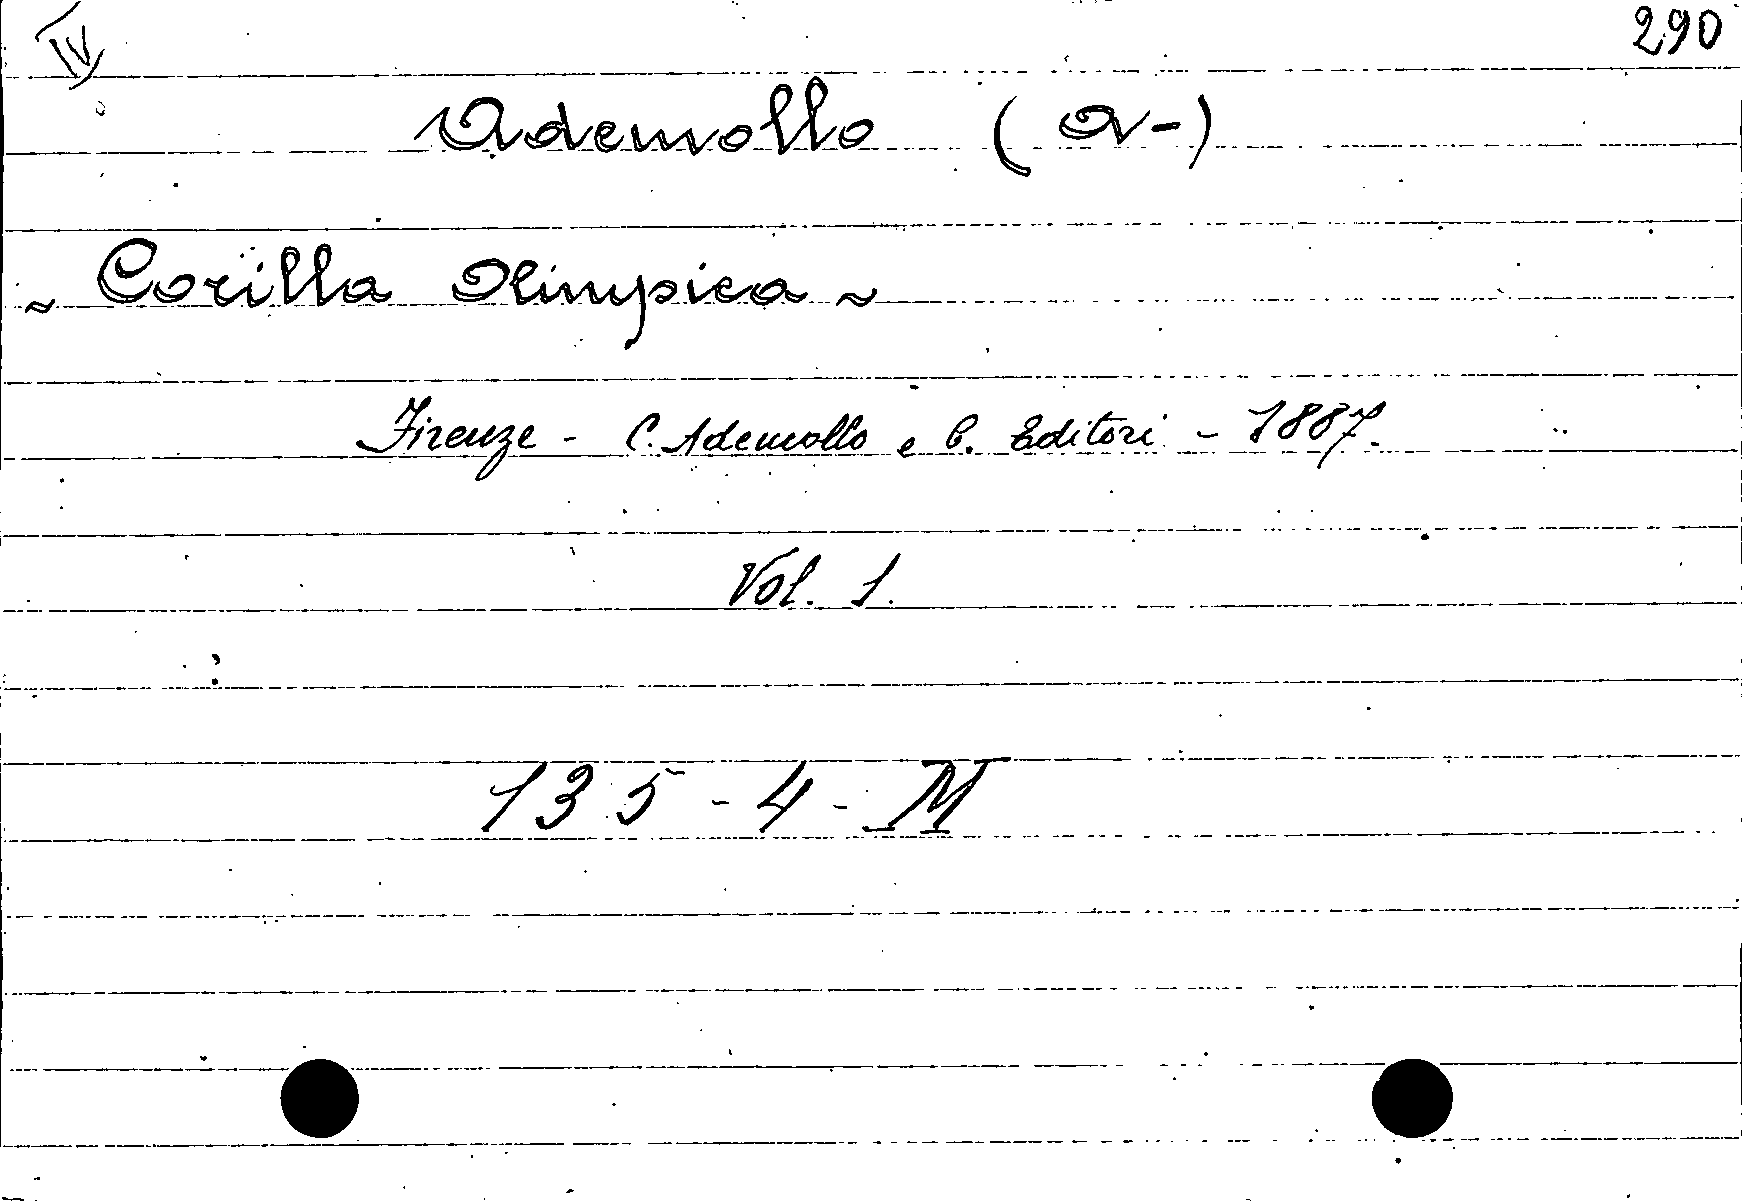 IV 290
Ademollo (A-)
~ Corilla Olimpica ~
Firenze - C. Ademollo e C. Editori - 1887.
Vol. 1.
135-4-M